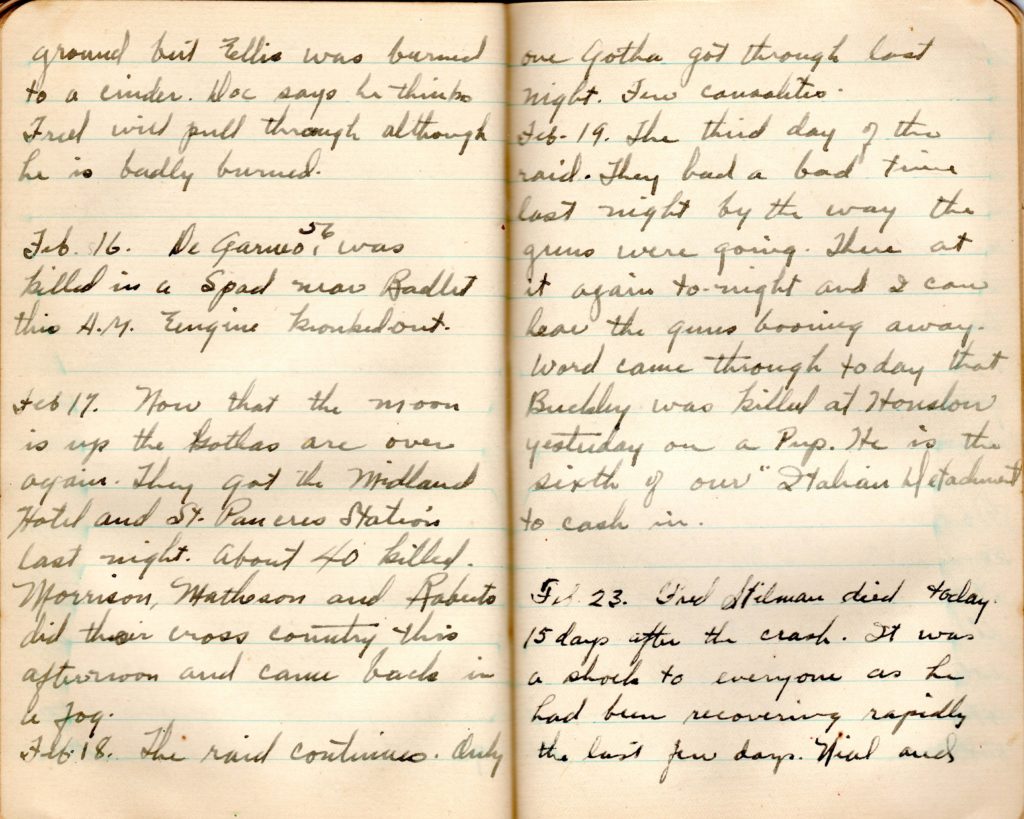 ground but Ellis was burned
to a cinder. Doc says he thinks
Fred will pull through although
he is badly burned.
Feb. 16. De Garmo 56, was
killed in a Spad near Radlet
this A.M. Eengine konked out.
Feb 17. Now that the moon
is up the Gothas are over
again. They got the Midland
Hotel and St. Pancres Station
last night. About 40 killed.
Morrison, Matheson and Roberts
did their cross country this
afternoon and came back in
a fog.
Feb. 18. The raid continues. Only
one Gotha got through last
night. Few causalties.
Feb. 19. The third day of the
raid. They had a bad time
last night by the way the
guns were going. There at
it again to-night and I can
hear the guns booming away.
Word came through today that
Buckley was killed at Honslow
yesterday on a Pup. He is the
sixth of our "Italian Detachment
to cash in.
Feb. 23. Fred Stilman died today.
15 days after the crash. It was
a shock to everyone as he
had been recovering rapidly
the last few days. Nial and